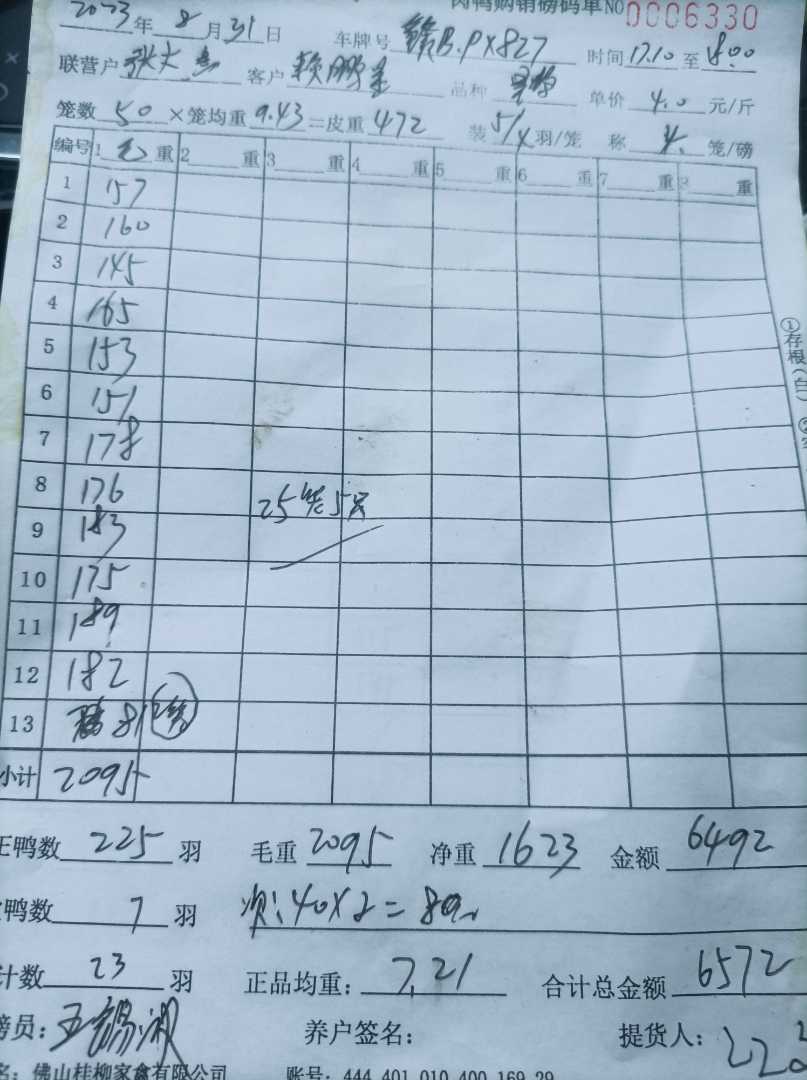 肉鸭购销磅码单 NO 0006330
2023年8月31日 车牌号 赣B.PX827 时间 17.10 至 18.00
联营户 张大 客户 赖鹏 品种 单价 4.0 元/斤
笼数 50 ×笼均重 9.43 =皮重 472 装 5/4 羽/笼 称 4. 笼/磅
编号 1 毛 重 2 重 3 重 4 重 5 重 6 重 7 重 8 重
1 157
2 160
3 145
4 165
5 153
6 151
7 178
8 176 25笼5只
9 183
10 175
11 189
12 182
13 81 2笼
小计 2095
①存根(白)
正鸭数 225 羽 毛重 2095 净重 1623 金额 6492
鸭数 7 羽 次:40×2=80
计数 23 羽 正品均重: 7.21 合计总金额 6572
磅员: 王锡 养户签名: 提货人:
名: 佛山桂柳家禽有限公司 账号: 444 401 010 400 169 29